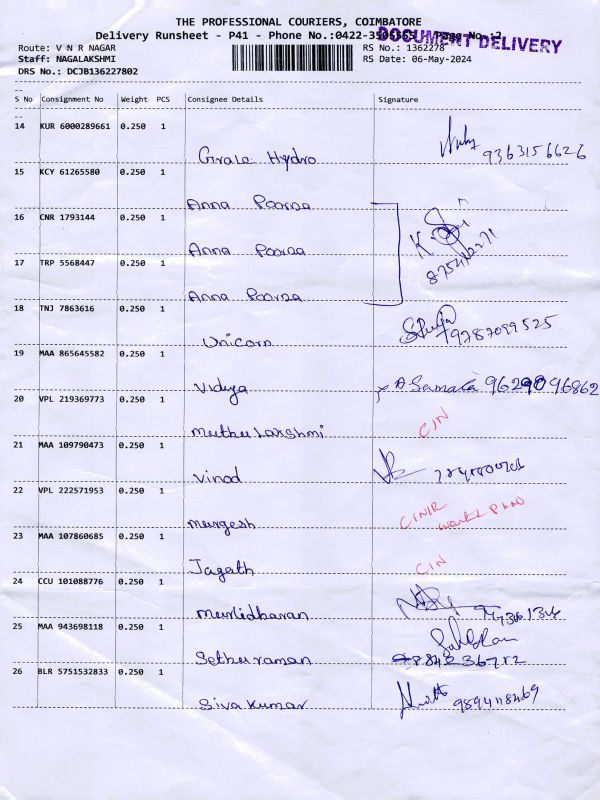 THE PROFESSIONAL COURIERS, COIMBATORE
Delivery Runsheet - P41 - Phone No.:0422-3505555 Page No.:2
DOCUMENT DELIVERY
Route: V N R NAGAR RS No.: 1362278
Staff: NAGALAKSHMI RS Date: 06-May-2024
DRS No.: DCJB136227802
S No Consignment No Weight PCS Consignee Details Signature
14 KUR 6000289661 0.250 1
Grale Hydro 9363156626
15 KCY 61265580 0.250 1
Anna Poorna
16 CNR 1793144 0.250 1
Anna Poorna
17 TRP 5568447 0.250 1
Anna Poorna
18 TNJ 7863616 0.250 1
Unicorn 9787099525
19 MAA 865645582 0.250 1
Vidya A Samala 9629096862
20 VPL 219369773 0.250 1
Muthu Lakshmi CIN
21 MAA 109790473 0.250 1
Vinod
22 VPL 222571953 0.250 1
Murgesh CINR
23 MAA 107860685 0.250 1
Jagath CIN
24 CCU 101088776 0.250 1
Murlidharan
25 MAA 943698118 0.250 1
Sethuraman
26 BLR 5751532833 0.250 1
Siva Kumar 9894118469